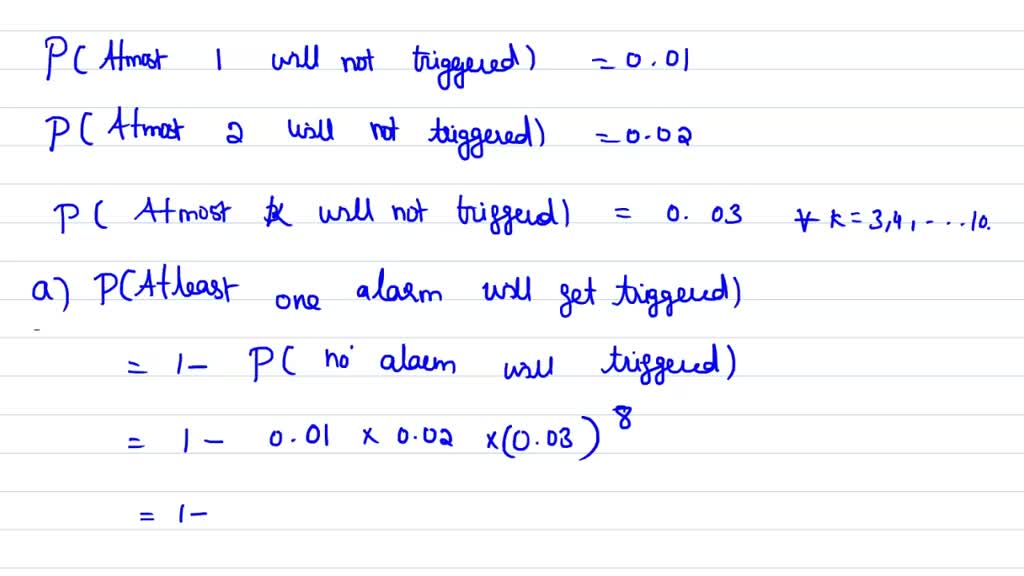 P( Atmost 1 will not triggered) = 0.01
P( Atmost 2 will not triggered) = 0.02
P( Atmost k will not triggerd) = 0.03 ∀ k = 3,4, - ... 10.
a) P(Atleast one alarm will get triggered)
= 1 - P( no alarm will triggered)
= 1 - 0.01 x 0.02 x (0.03)^8
= 1 -